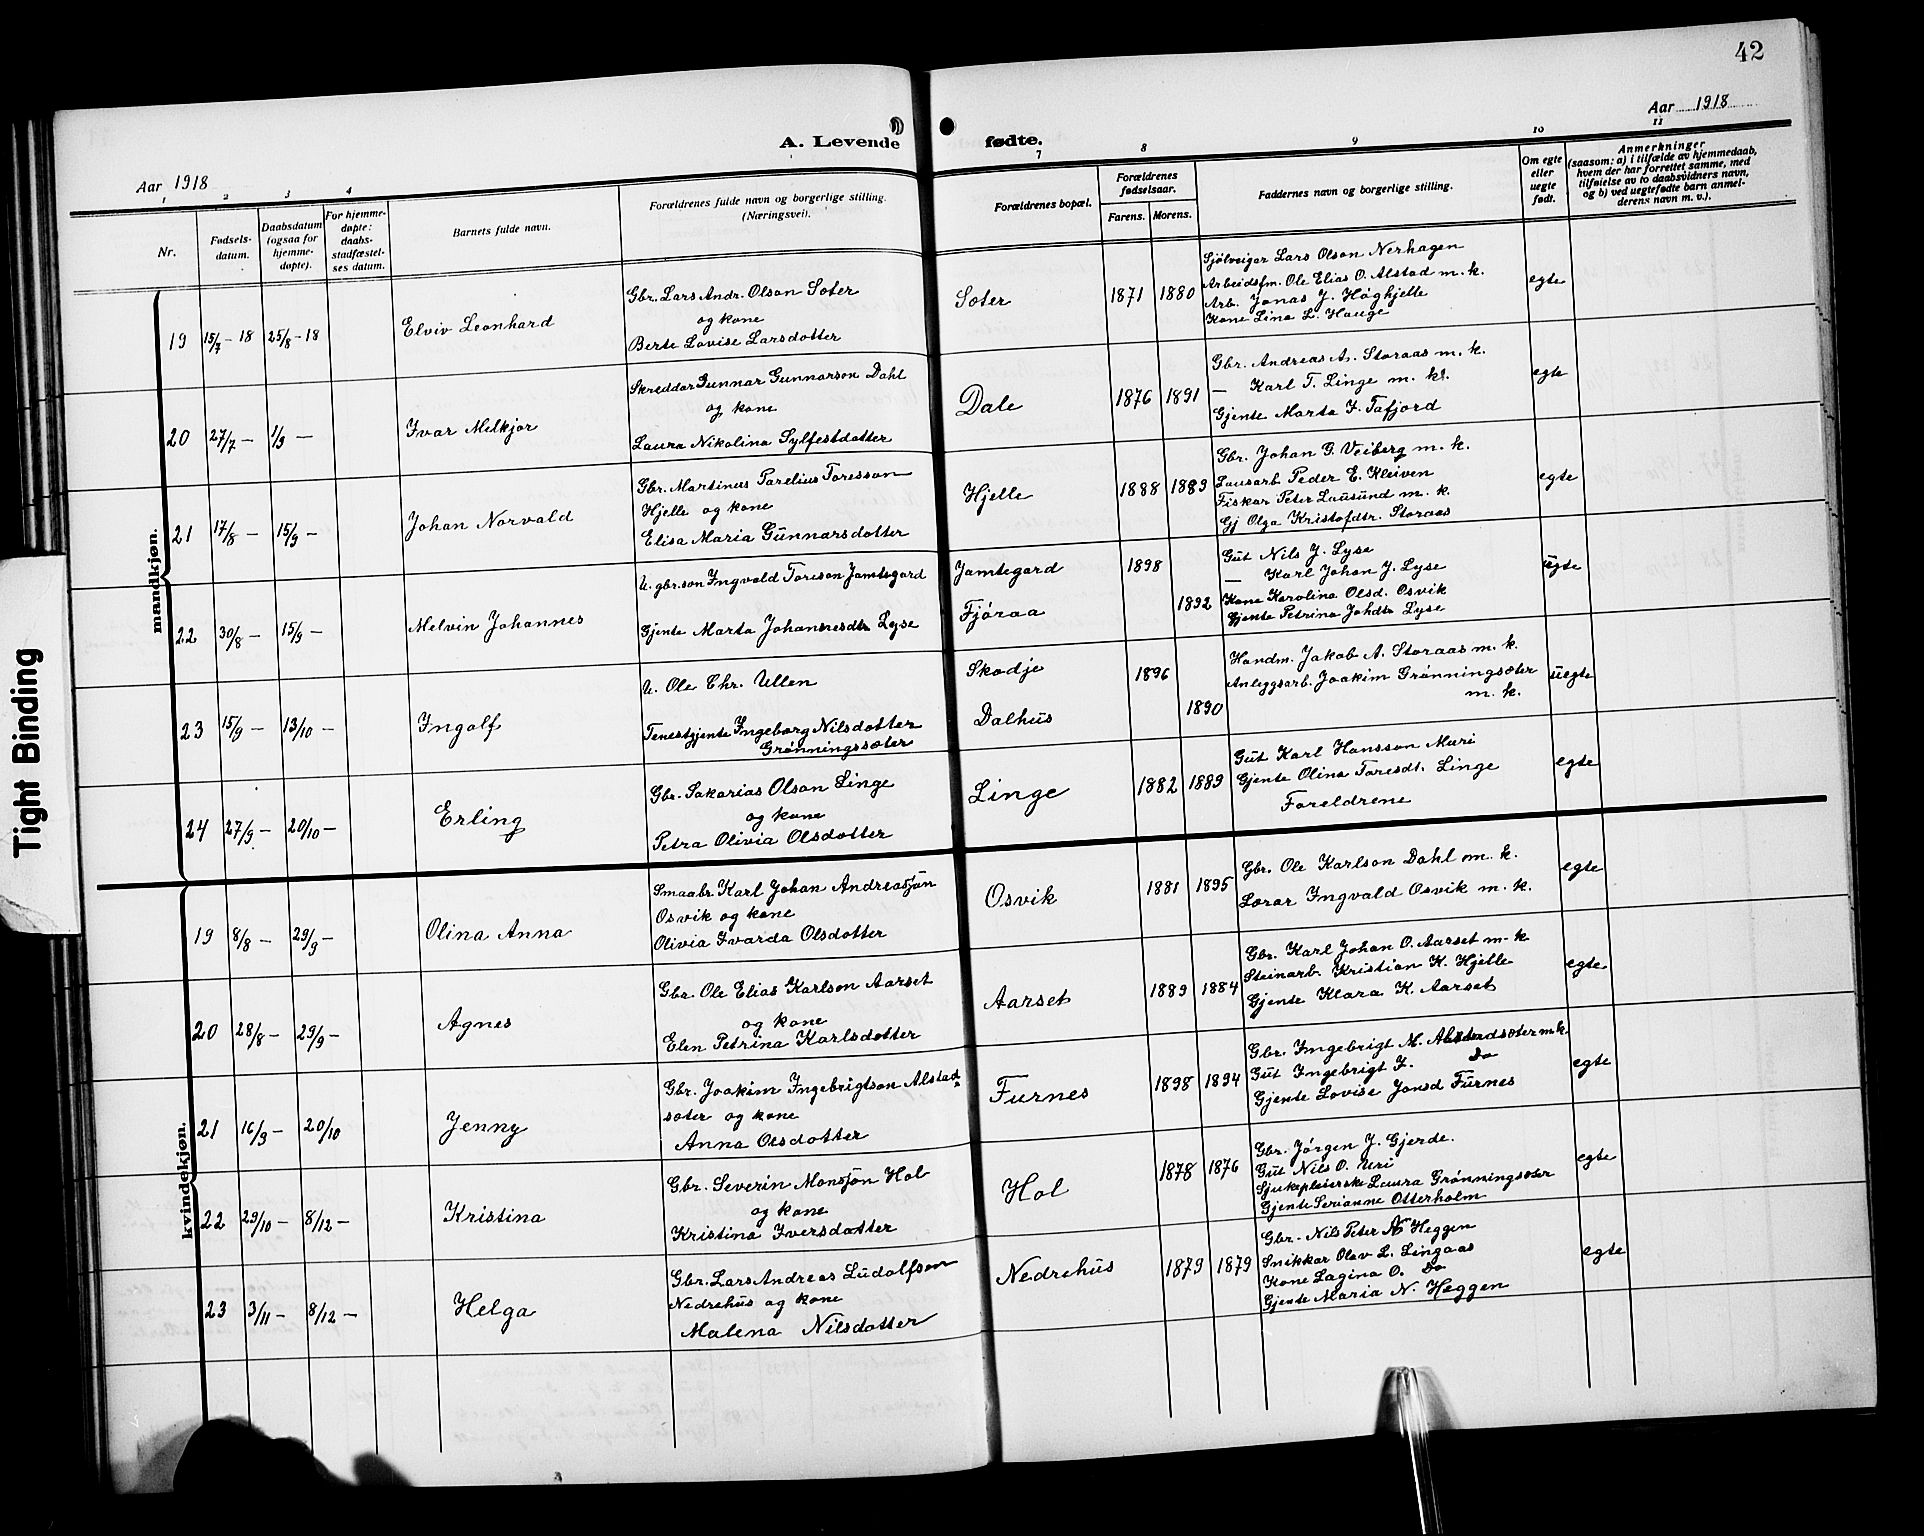 42
Aar 1918
A. Levende fødte.
Aar 1918
1 2 3 4 7 8 9 10 11
Nr.
Fødsels-
datum.
Daabsdatum
(ogsaa for
hjemme-
døpte).
For hjemme-
døpte:
daabs-
stadfæstel-
ses datum.
Barnets fulde navn.
Forældrenes fulde navn og borgerlige stilling.
(Næringsvei).
Forældrenes bopæl.
Forældrenes
fødselsaar.
Farens. Morens.
Faddernes navn og borgerlige stilling.
Om egte
eller
uegte
født.
Anmerkninger
(saasom: a) i tilfælde av hjemmedaab,
hvem der har forrettet samme, med
tilføielse av to daabsvidners navn,
og b) ved uegtefødte barn anmel-
derens navn m. v.).
mandkjøn.
19 15/7 - 18 25/8 - 18 Elviv Leonhard
Gbr. Lars Andr. Olson Soter
og kone
Berte Lovise Larsdotter
Soter 1871 1880
Sjölveigar Lars Olson Nerhagen
Arbeidsfm. Ole Elias O. Alstad m. k.
Arb. Jonas J. Höghjelle
Kone Lina L. Hauge
egte
20 27/7 - 1/9 - Ivar Melkjor
Skreddar Gunnar Gunnarson Dahl
og kone
Laura Nikolina Sylfestdotter
Dale 1876 1891
Gbr. Andreas A. Storaas m. k.
— Karl T. Linge m. k.
Gjente Marta I. Tafjord
egte
21 17/8 - 15/9 - Johan Norvald
Gbr. Martinus Parelius Toresson
Hjelle og kone
Elisa Maria Gunnarsdotter
Hjelle 1888 1889
Gbr. Johan G. Veiberg m. k.
Lausarb Peder E. Kleiven
Fiskar Peter Lausund m. k.
Gj Olga Kristofdtr. Storaas
egte
22 30/8 - 15/9 - Melvin Johannes
U. gbr.son Ingvald Toreson Jamtegard
Gjente Marta Johannesdtr Lyse
Jamtegard 1898
Fjøraa 1892
Gut Nils J. Lyse
— Karl Johan J. Lyse
Kone Karolina Olsd. Osvik
Gjente Petrina Johdtr Lyse
uegte
23 15/9 - 13/10 - Ingolf
U. Ole Chr. Ullen
Tenestgjente Ingeborg Nilsdotter
Grønningssæter
Skodje 1896
Dalhus 1890
Handm. Jakob A. Storaas m. k.
Anleggsarb. Joakim Grønningsæter
m. k.
uegte
24 27/9 - 20/10 - Erling
Gbr. Sakarias Olson Linge
og kone
Petra Olivia Olsdotter
Linge 1882 1889
Gut Karl Hansson Muri
Gjente Olina Toresdt. Linge
Foreldrene
egte
kvindekjøn.
19 8/8 - 29/9 - Olina Anna
Smaabr. Karl Johan Andreassøn
Osvik og kone
Olivia Ivarda Olsdotter
Osvik 1881 1895
Gbr. Ole Karlson Dahl m. k.
Lærar Ingvald Osvik m. k.
egte
20 28/8 - 29/9 - Agnes
Gbr Ole Elias Karlson Aarset
og kone
Elen Petrina Karlsdotter
Aarset 1889 1884
Gbr. Karl Johan O. Aarset m. k
Steinarb. Kristian K. Hjelle
Gjente Klara K. Aarset
egte
21 16/9 - 20/10 Jenny
Gbr. Joakim Ingebrigtson Alstad-
sæter og kone
Anna Olsdotter
Furnes 1898 1894
Gbr. Ingebrigt M. Alstadsæter m k.
Gut Ingebrigt I. Do
Gjente Lovise Jonsd Furnes
egte
22 29/10 - 8/12 - Kristina
Gbr. Severin Monsjøn Hol
og kone
Kristina Iversdotter
Hol 1878 1876
Gbr. Jörgen J. Gjerde.
Gut Nils O. Uri
Sjukepleierske Laura Grønningsæter
Gjente Serianne Otterholm
egte
23 3/11 - 8/12 - Helga
Gbr. Lars Andreas Ludolfson
Nedrehus og kone
Malena Nilsdotter
Nedrehus 1879 1879
Gbr. Nils Peter N Heggen
Snikkar Olav L. Lingaas
Kone Lagina O. Do
Gjente Maria N. Heggen
egte
Tight Binding